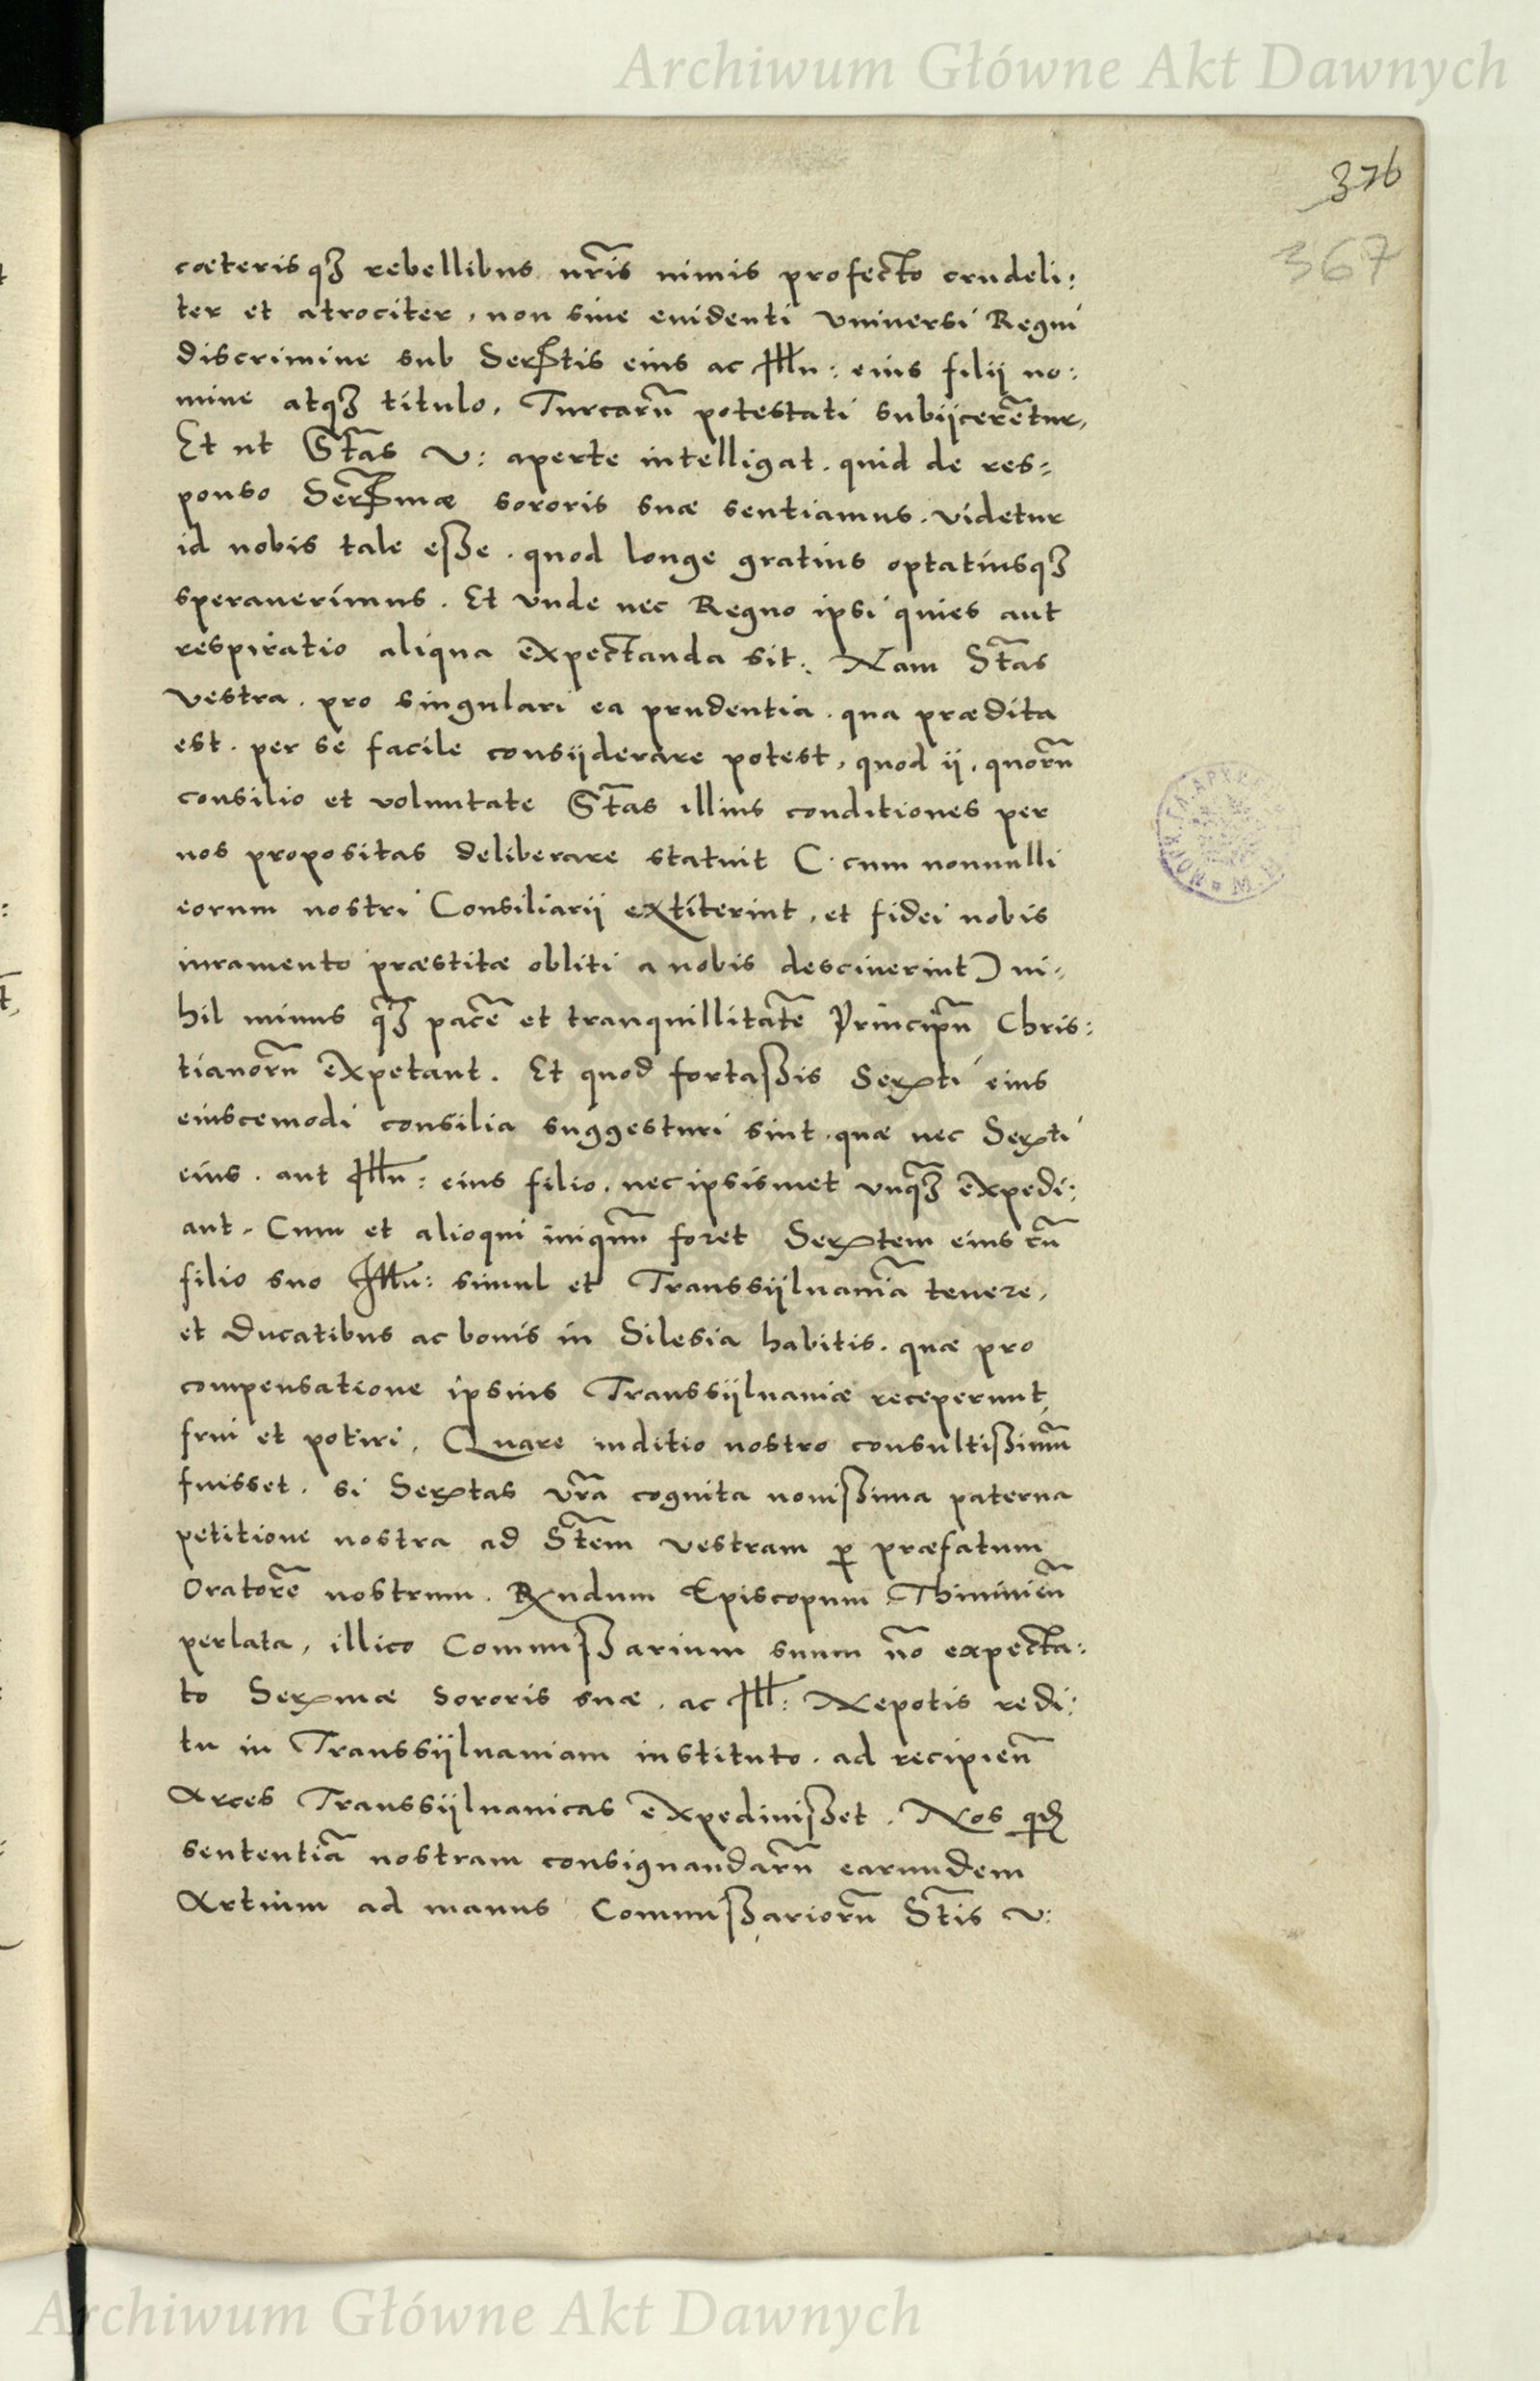 Archiwum Główne Akt Dawnych
376
367
cæterisqȝ rebellibus nr̃is nimis profecto crudeli:
ter et atrociter, non sine euidenti vniuersi Regni
discrimine sub Serᵗtis eius ac Illu: eius filij no:
mine atqȝ titulo, Turcarũ potestati subijcerẽtur,
Et ut S̃tas V: aperte intelligat. quid de res=
ponso Serᵐmæ sororis suæ sentiamus. videtur
id nobis tale eße. quod longe gratius optatiusqȝ
sperauerimus. Et vnde nec Regno ipsi quies aut
respiratio aliqua expectanda sit. Nam S̃tas
vestra. pro singulari ea prudentia. qua prædita
est. per se facile consÿderare potest, quod ij, quorũ
consilio et voluntate S̃tas illius conditiones per
nos propositas deliberare statuit (. cum nonnulli
eorum nostri Consiliarij extiterint, et fidei nobis
iuramento præstitæ obliti a nobis desciuerint) ni=
hil minus q̃ȝ pacẽ et tranquillitatẽ Principũ Chris:
tianorũ expetant. Et quod fortaßis Serti eius
eiuscemodi consilia suggesturi sint. quæ nec Serti
eius. aut Illu̅: eius filio. nec ipsismet vnq̃ȝ expedi:
ant. Cum et alioqui iniquũ foret Sertem eius cũ
filio suo Illu̅: simul et Transsÿluaniã tenere,
et Ducatibus ac bonis in Silesia habitis. quæ pro
compensatione ipsius Transsÿluaniæ receperunt,
frui et potiri. Quare iuditio nostro consultißimũ
fuisset. si Sertas vr̃a cognita nouißima paterna
petitione nostra ad S̃tem vestram ꝑ præfatum
Oratorẽ nostrum. Rndum Episcopum Thininien̅
perlata, illico Commißarium suum nõ expecta:
to Sermæ Sororis suæ. ac Ill: Nepotis redi:
tu in Transsÿluaniam instituto. ad recipien̅
Arces Transsÿluanicas expediuißet. Nos qd
sententiã nostram consignandarũ earundem
Artium ad manus Commißariorũ S̃tis V:
Archiwum Główne Akt Dawnych